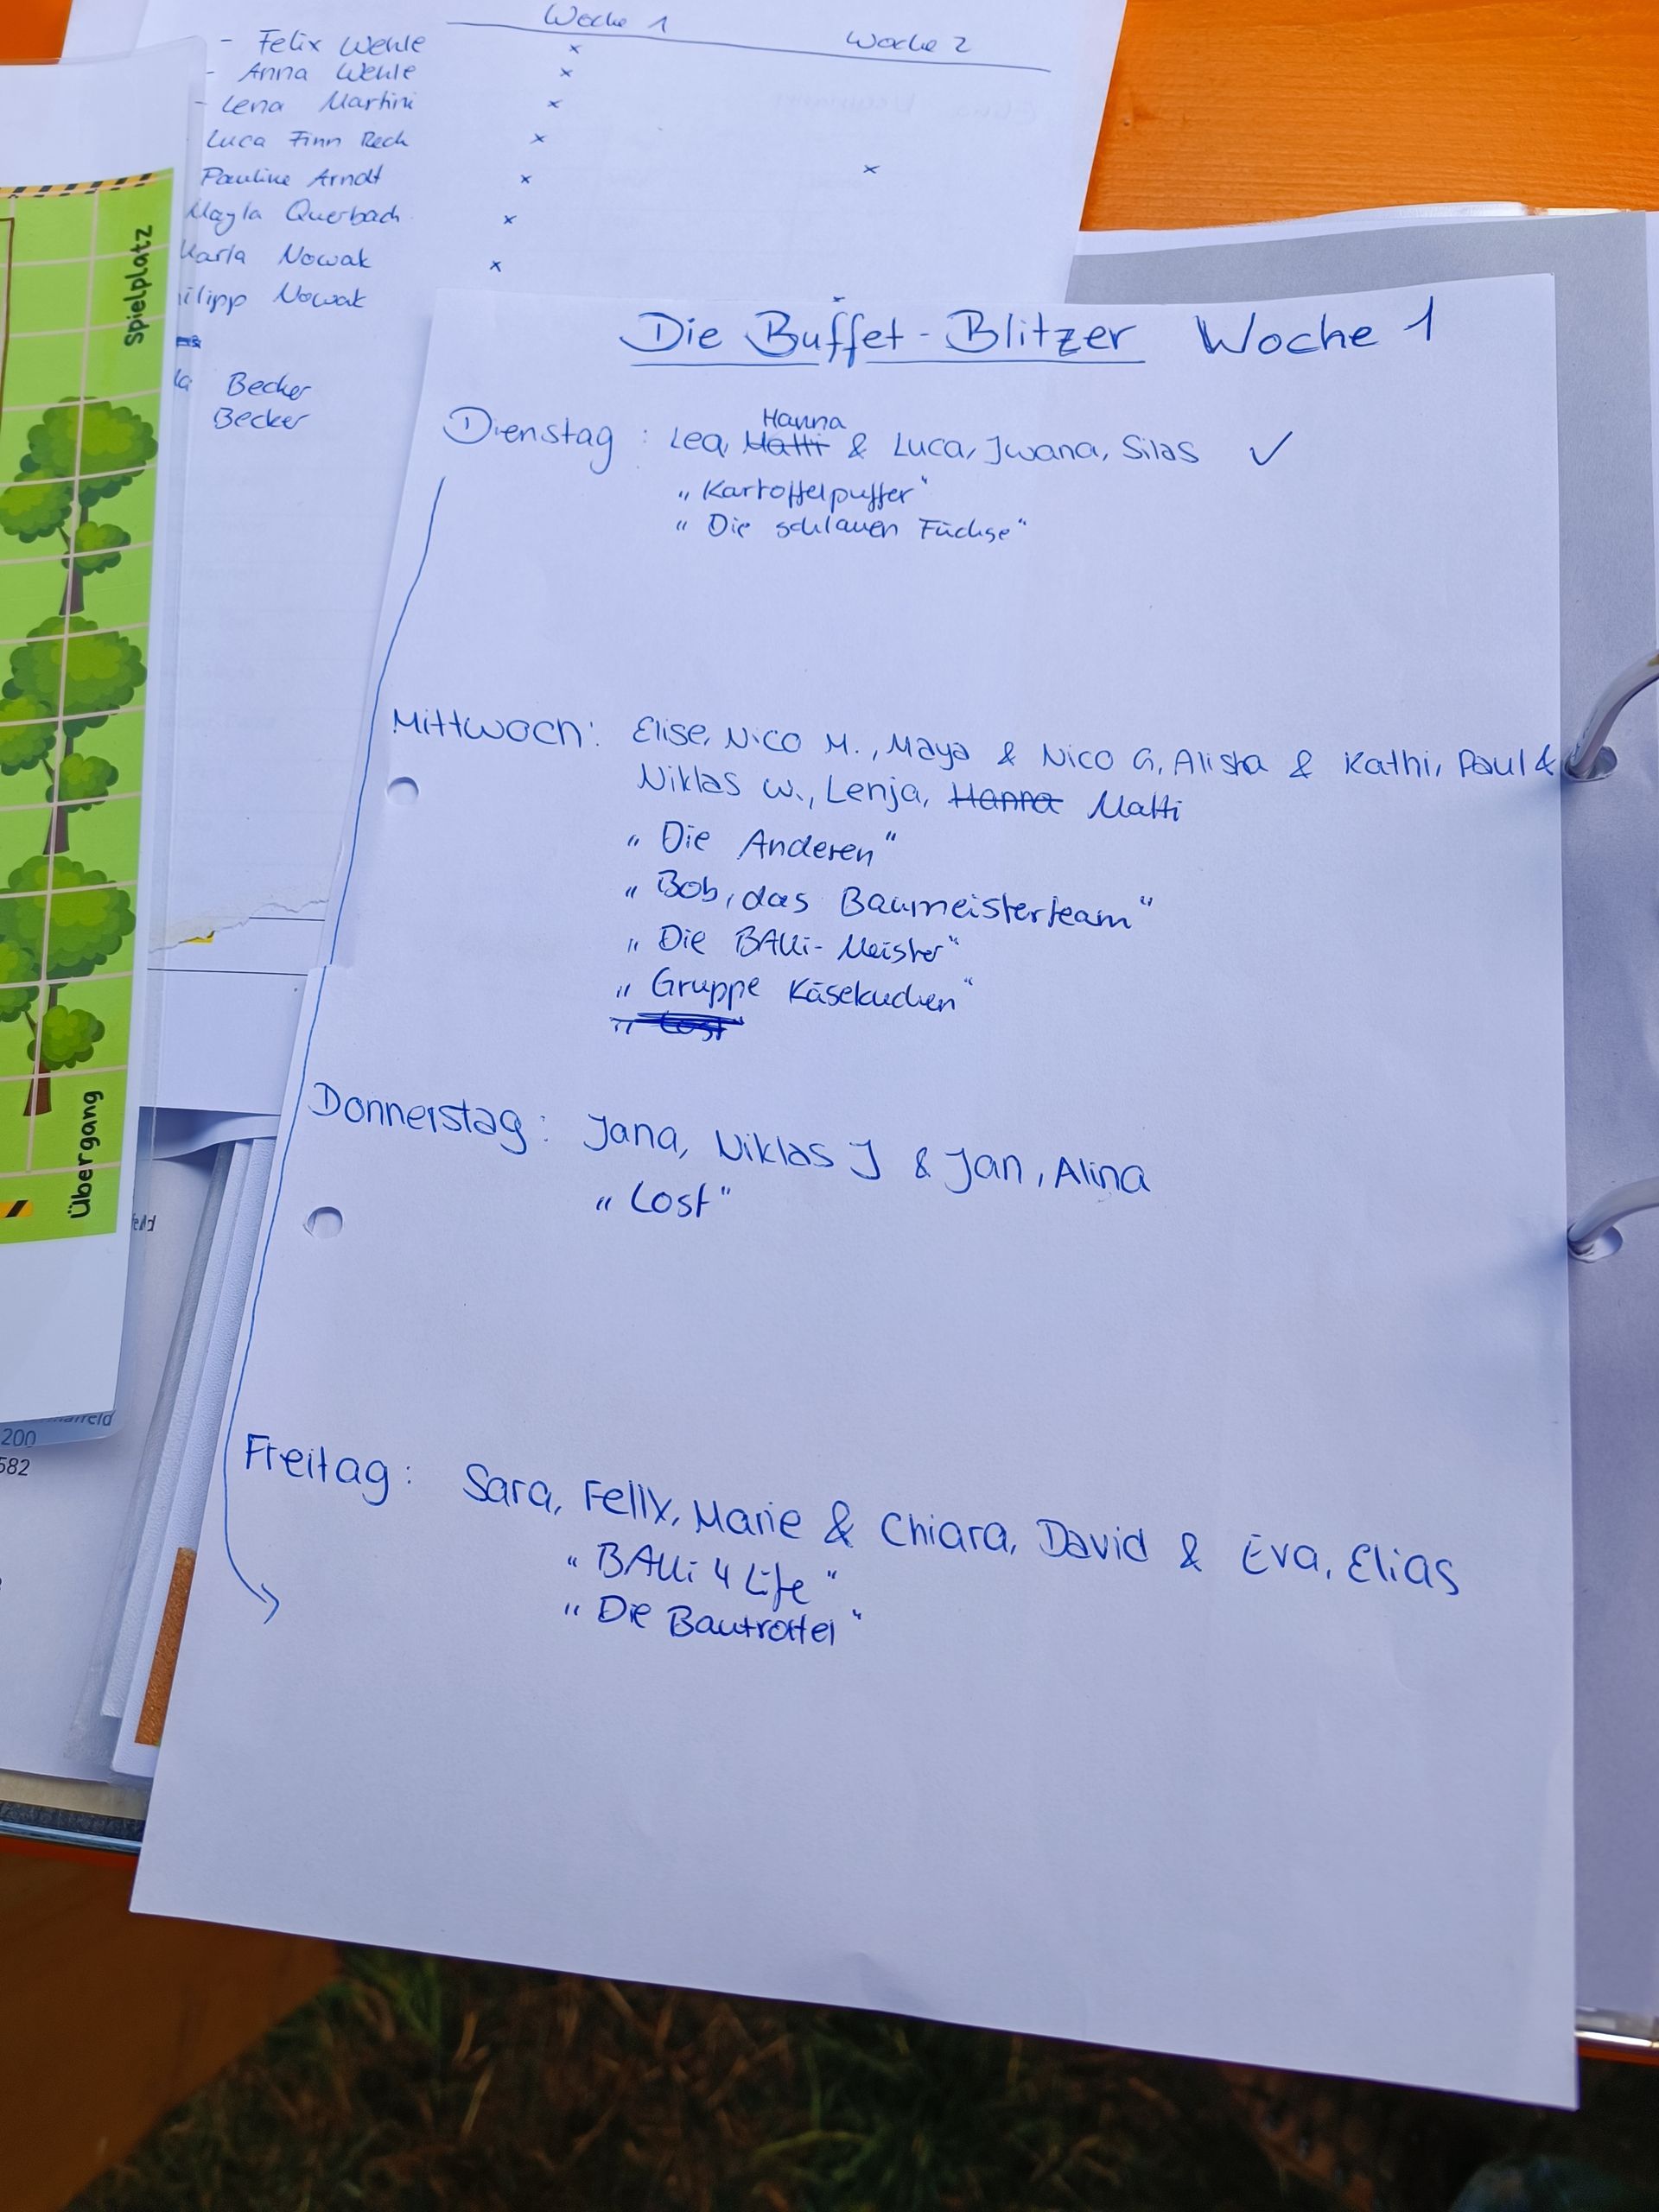 Woche 1 Woche 2
- Felix Wehle x
- Anna Wehle x
- Lena Martini x
Luca Finn Rech x
Pauline Arndt x x
Mayla Querbach x
Karla Nowak x
ilipp Nowak
Becker
Becker
Spielplatz
Übergang
200
582
Die Buffet-Blitzer Woche 1
Hanna
Dienstag: Lea, Matti & Luca, Jwana, Silas ✓
„Kartoffelpuffer“
“Die schlauen Füchse“
Mittwoch: Elise, Nico M., Maya & Nico G, Alisha & Kathi, Paul &
Niklas W., Lenja, Hanna Matti
„Die Anderen“
„Bob, das Baumeisterteam“
„Die BAUi-Meister“
„Gruppe Käsekuchen“
„Lost“
Donnerstag: Jana, Niklas J & Jan, Alina
“Lost”
Freitag: Sara, Fellx, Marie & Chiara, David & Eva, Elias
“BAUi 4 Life“
„Die Bautrottel“